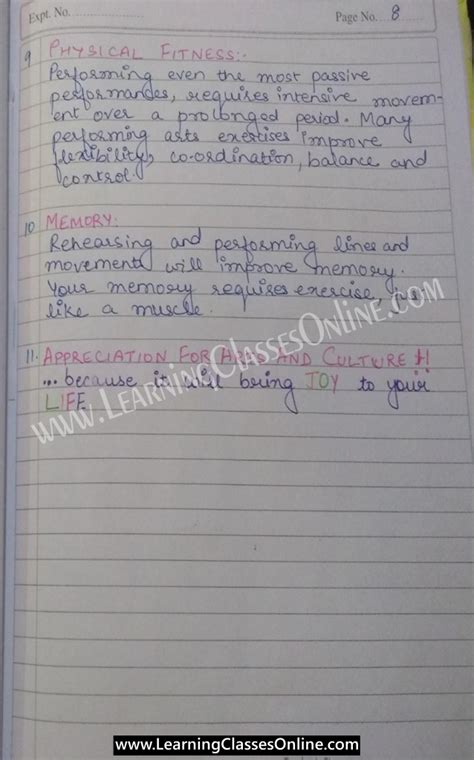 Expt. No. Page No. 8
9 PHYSICAL FITNESS:-
Performing even the most passive
performances, requires intensive movem-
ent over a prolonged period. Many
performing arts exercises improve
flexibility, co-ordination, balance and
control.
10 MEMORY:
Rehearsing and performing lines and
movement will improve memory.
Your memory requires exercise, just
like a muscle.
11. APPRECIATION FOR ARTS AND CULTURE !!
... because it will bring JOY to your
LIFE
www.LearningClassesOnline.com
www.LearningClassesOnline.com